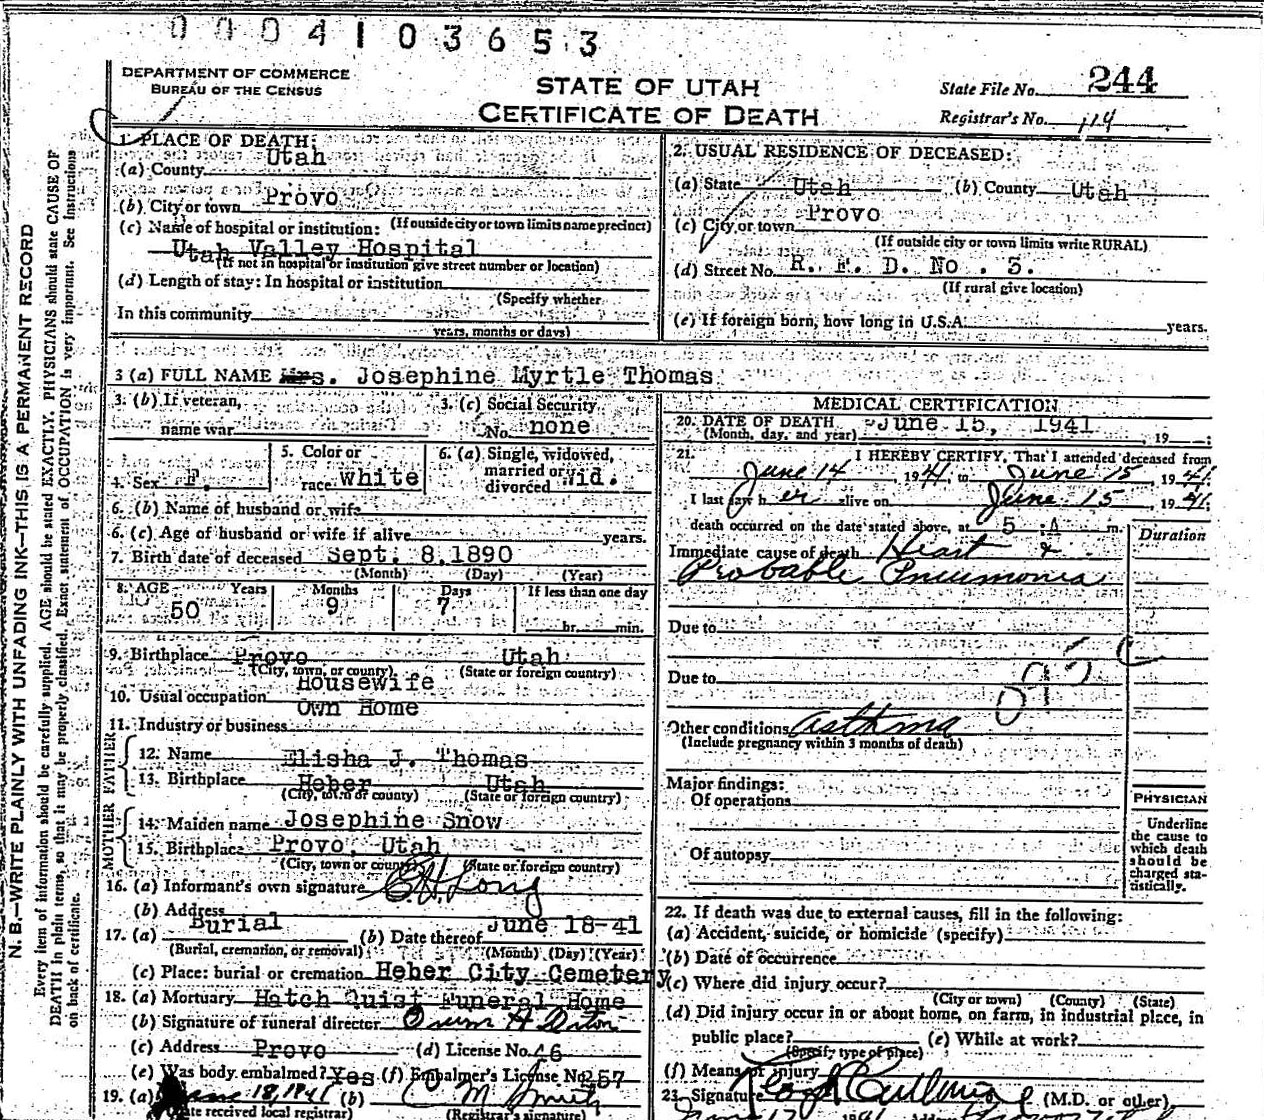 0004103653
DEPARTMENT OF COMMERCE
BUREAU OF THE CENSUS
STATE OF UTAH
CERTIFICATE OF DEATH
State File No. 244
Registrar's No. 114
1. PLACE OF DEATH:
(a) County Utah
(b) City or town Provo
(If outside city or town limits name precinct)
(c) Name of hospital or institution:
Utah Valley Hospital
(If not in hospital or institution give street number or location)
(d) Length of stay: In hospital or institution
(Specify whether
In this community
years, months or days)
2. USUAL RESIDENCE OF DECEASED:
(a) State Utah (b) County Utah
(c) City or town Provo
(If outside city or town limits write RURAL)
(d) Street No. R. F. D. No. 3.
(If rural give location)
(e) If foreign born, how long in U.S.A. years.
3 (a) FULL NAME Mrs. Josephine Myrtle Thomas
3. (b) If veteran, name war
3. (c) Social Security No. none
4. Sex F.
5. Color or race white
6. (a) Single, widowed, married or divorced wid.
6. (b) Name of husband or wife
6. (c) Age of husband or wife if alive years.
7. Birth date of deceased Sept. 8, 1890
(Month) (Day) (Year)
8. AGE Years Months Days If less than one day
50 9 7 hr. min.
9. Birthplace Provo Utah
(City, town, or county) (State or foreign country)
10. Usual occupation Housewife
11. Industry or business Own Home
FATHER
12. Name Elisha J. Thomas
13. Birthplace Heber Utah
(City, town or county) (State or foreign country)
MOTHER
14. Maiden name Josephine Snow
15. Birthplace Provo, Utah
(City, town or county) (State or foreign country)
16. (a) Informant's own signature E.H. Long
(b) Address
17. (a) Burial (b) Date thereof June 18-41
(Burial, cremation, or removal) (Month) (Day) (Year)
(c) Place: burial or cremation Heber City Cemetery
18. (a) Mortuary Hatch Quist Funeral Home
(b) Signature of funeral director
(c) Address Provo (d) License No. 46
(e) Was body embalmed? Yes (f) Embalmer's License No. 257
19. (a) June 18, 1941 (b) C M Smith
(Date received local registrar) (Registrar's signature)
MEDICAL CERTIFICATION
20. DATE OF DEATH June 15, 1941, 19
(Month, day, and year)
21. I HEREBY CERTIFY, That I attended deceased from
June 14 1941, to June 15, 1941
I last saw her alive on June 15, 1941;
death occurred on the date stated above, at 5 :A m.
Duration
Immediate cause of death Heart &
Probable Pneumonia
Due to
Due to
Other conditions asthma
(Include pregnancy within 3 months of death)
Major findings:
Of operations
Of autopsy
PHYSICIAN
Underline
the cause to
which death
should be
charged sta-
tistically.
22. If death was due to external causes, fill in the following:
(a) Accident, suicide, or homicide (specify)
(b) Date of occurrence
(c) Where did injury occur?
(City or town) (County) (State)
(d) Did injury occur in or about home, on farm, in industrial place, in
public place? (e) While at work?
(Specify type of place)
(f) Means of injury
23. Signature (M.D. or other)
N. B.—WRITE PLAINLY WITH UNFADING INK—THIS IS A PERMANENT RECORD
Every item of information should be carefully supplied. AGE should be stated EXACTLY. PHYSICIANS should state CAUSE OF
DEATH in plain terms, so that it may be properly classified. Exact statement of OCCUPATION is very important. See Instructions
on back of certificate.